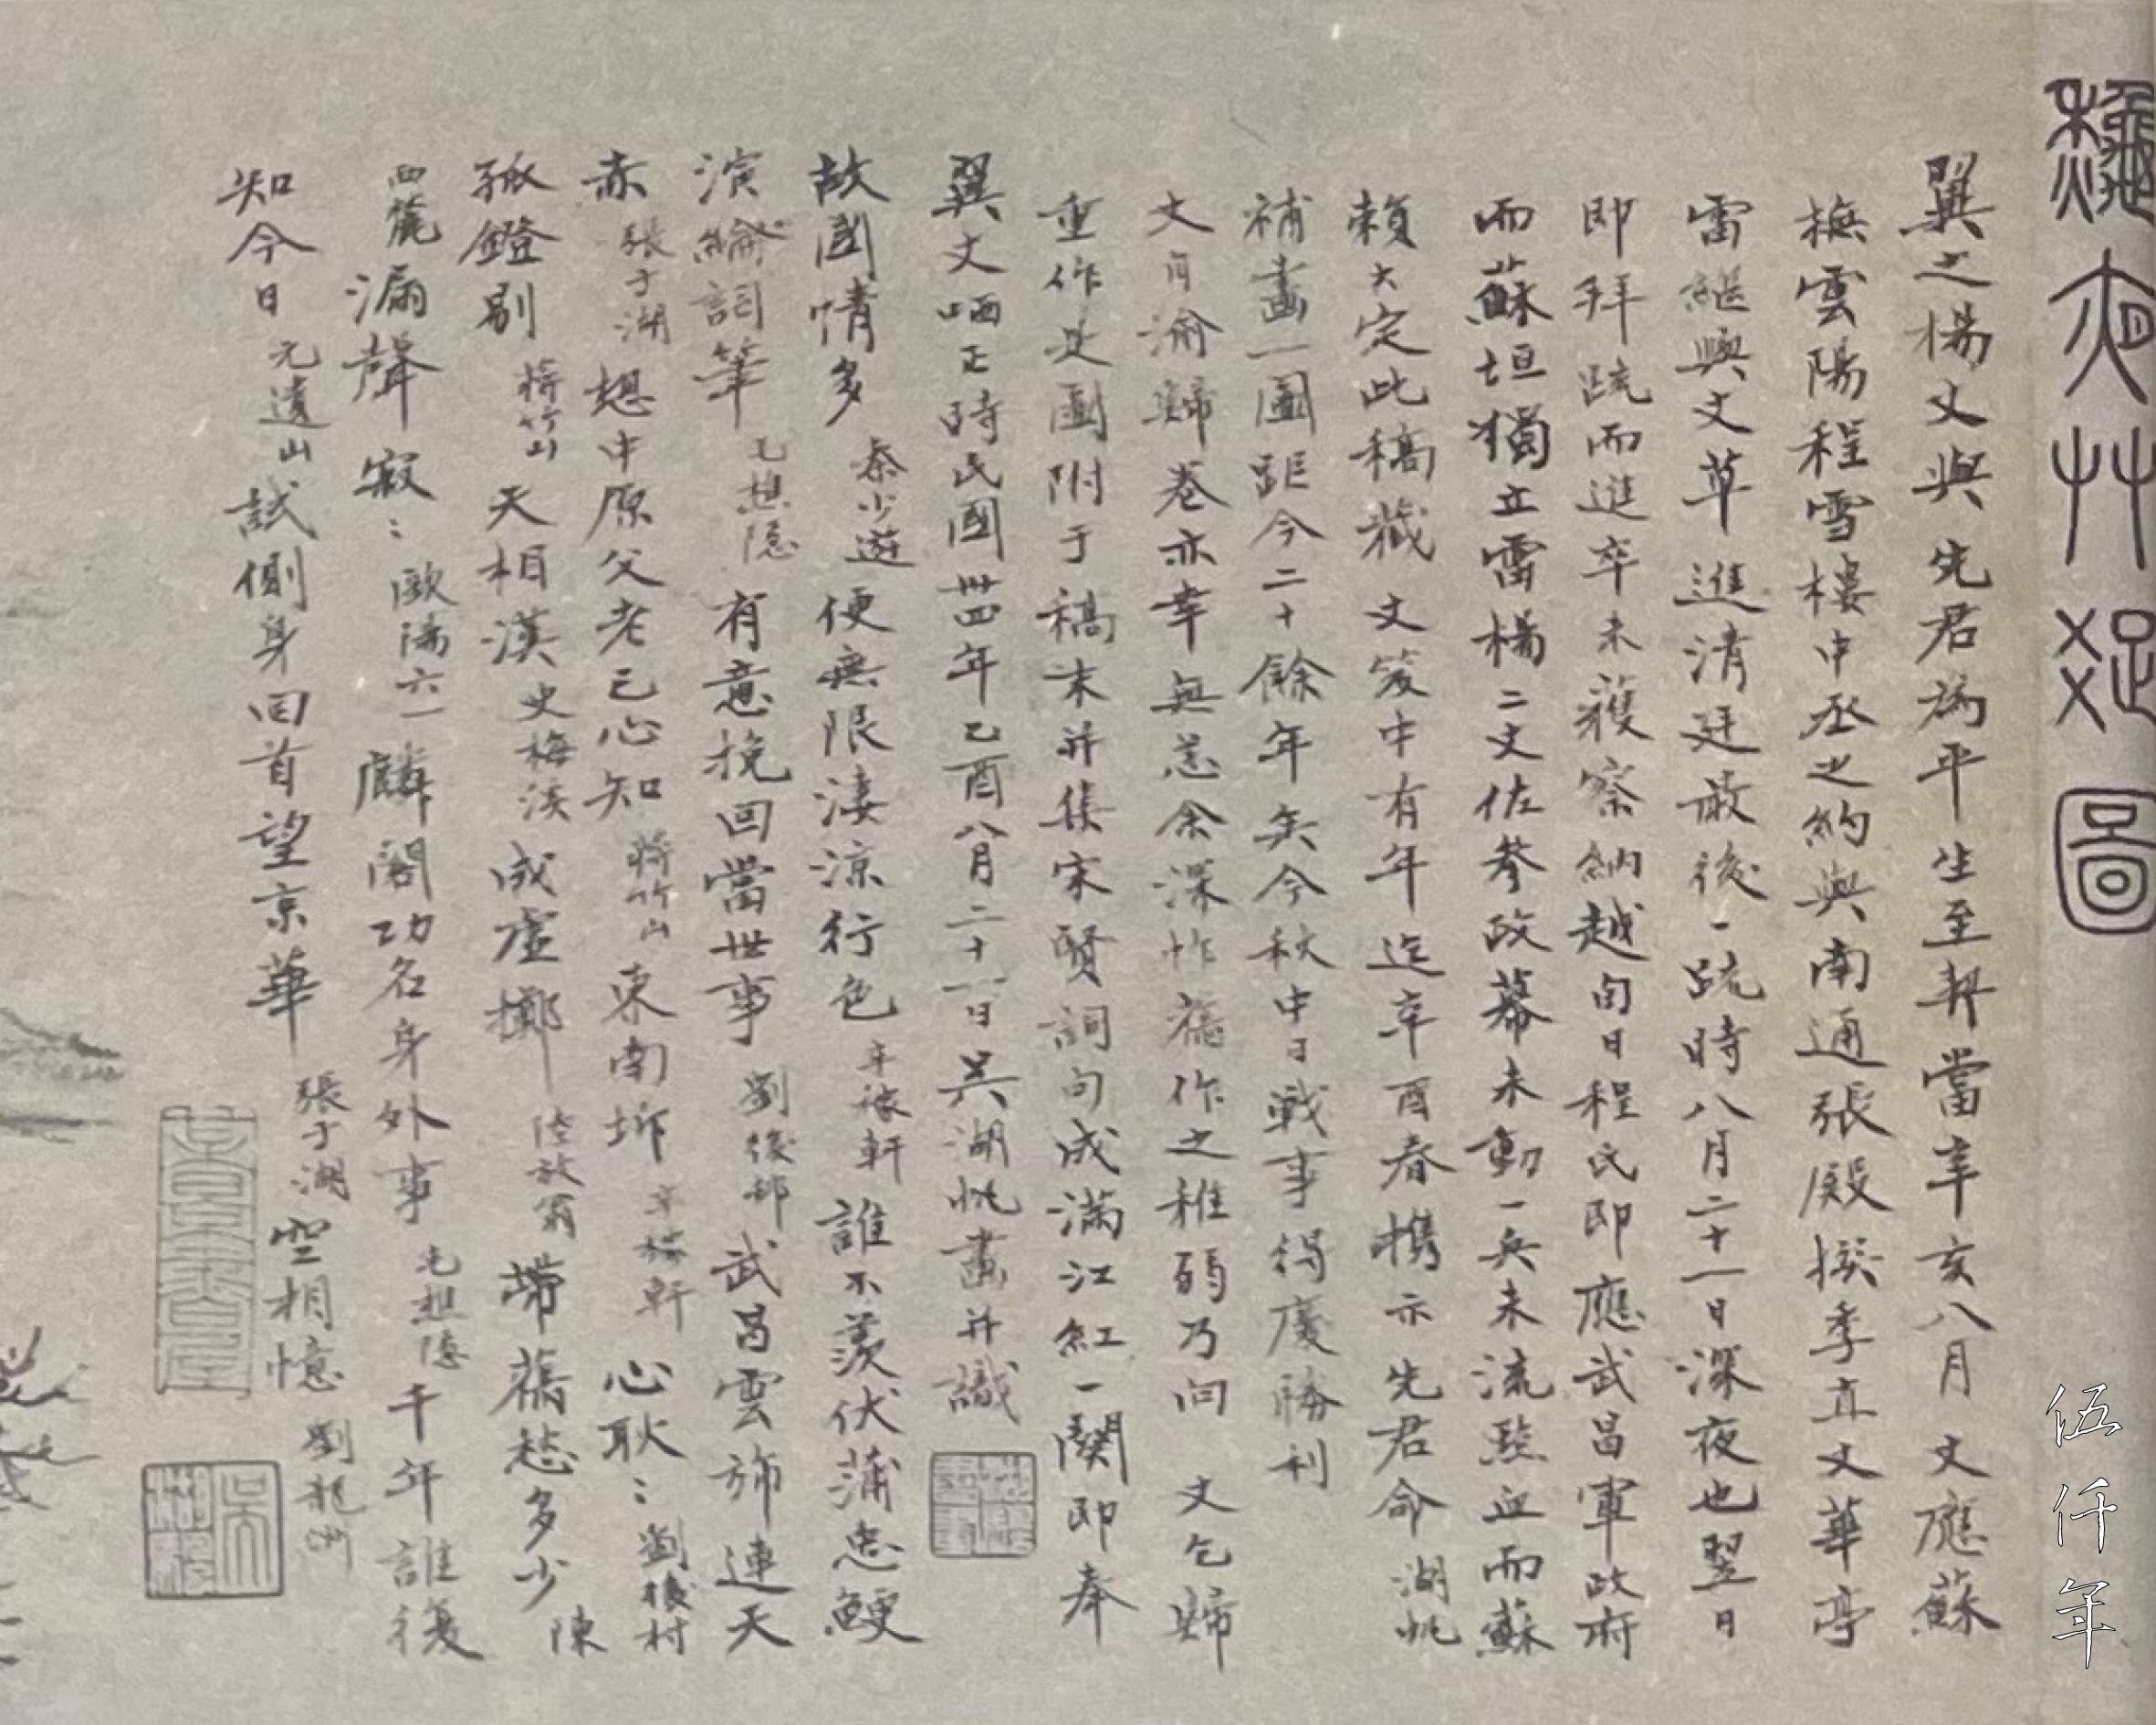 龝夜艸疏圖
翼之楊丈與先君為平生至契當辛亥八月丈應蘇
撫雲陽程雪樓中丞之約與南通張殿撰季直丈華亭
雷繼興丈草進清廷最後一疏時八月二十一日深夜也翌日
即拜疏而進卒未獲察納越旬日程氏即應武昌軍政府
而蘇垣獨立雷楊二丈佐參政幕未動一兵未流點血而蘇
賴大定此稿藏丈笈中有年迄辛酉春攜示先君命湖帆
補畫一圖距今二十餘年矣今秋中日戰事得慶勝利
丈自渝歸卷亦幸無恙余深怍舊作之稚弱乃向丈乞歸
重作是圖附于稿末并集宋賢詞句成滿江紅一闋即奉
翼丈哂正時民國卅四年乙酉八月二十一日吳湖帆畫并識
故國情多秦少遊便無限淒涼行色辛稼軒誰不羨伏蒲忠鯁
演綸詞筆毛樵隱有意挽回當世事劉後邨武昌雲旆連天
赤張于湖想中原父老已心知蔣竹山東南坼辛稼軒心耿耿劉後村
孤鐙剔蔣竹山天相漢史梅溪成虛擲陸放翁帶舊愁多少陳
西麓漏聲寂寂歐陽六一麟閣功名身外事毛樵隱千年誰復
知今日元遺山試側身回首望京華張于湖空相憶劉龍洲
伍仟年